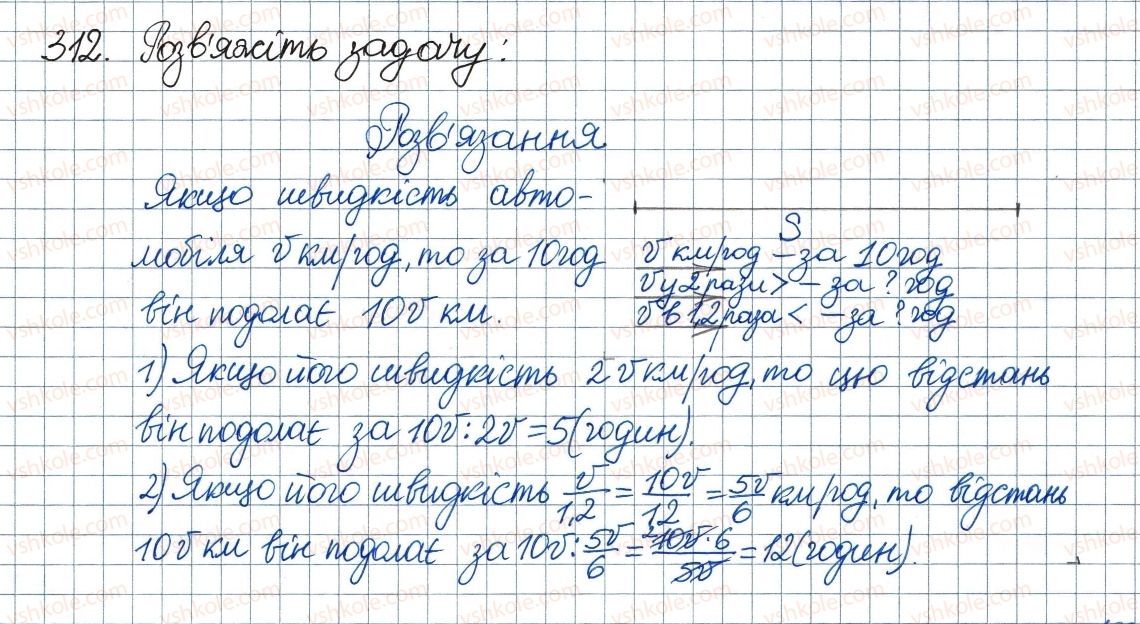 312. Розв'яжіть задачу:
Розв'язання
Якщо швидкість авто-
мобіля v км/год, то за 10 год
він подолає 10v км.
S
v км/год – за 10 год
v у 2 рази > – за ? год
v в 1,2 раза < – за ? год
1) Якщо його швидкість 2v км/год, то цю відстань
він подолає за 10v : 2v = 5 (годин).
2) Якщо його швидкість v/1,2 = 10v/12 = 5v/6 км/год, то відстань
10v км він подолає за 10v : 5v/6 = 10v·6/5v = 12 (годин).